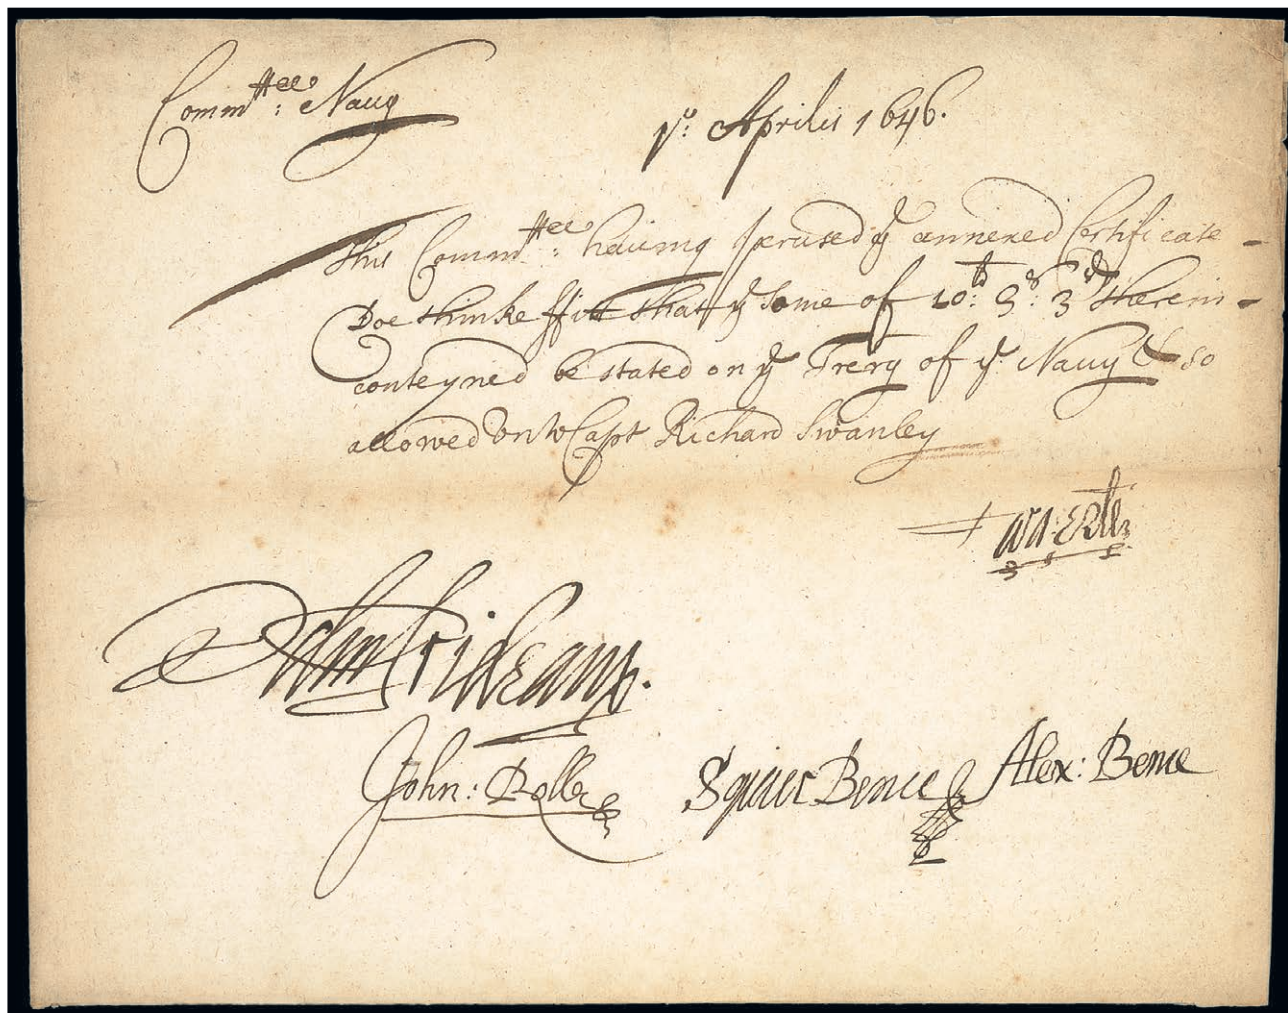 Com̄ttee: Navy
po: Aprilis 1646.
This Com̄ttee: haueing perused ye annexed Certificate -
Doe thinke ffitt that ye some of 10li: 9s: 3d therein -
conteyned be stated on ye Trery of ye Navy & so
allowed vnto Capt Richard Swanley
John: Rolle
Squier Bence Alex: Bence